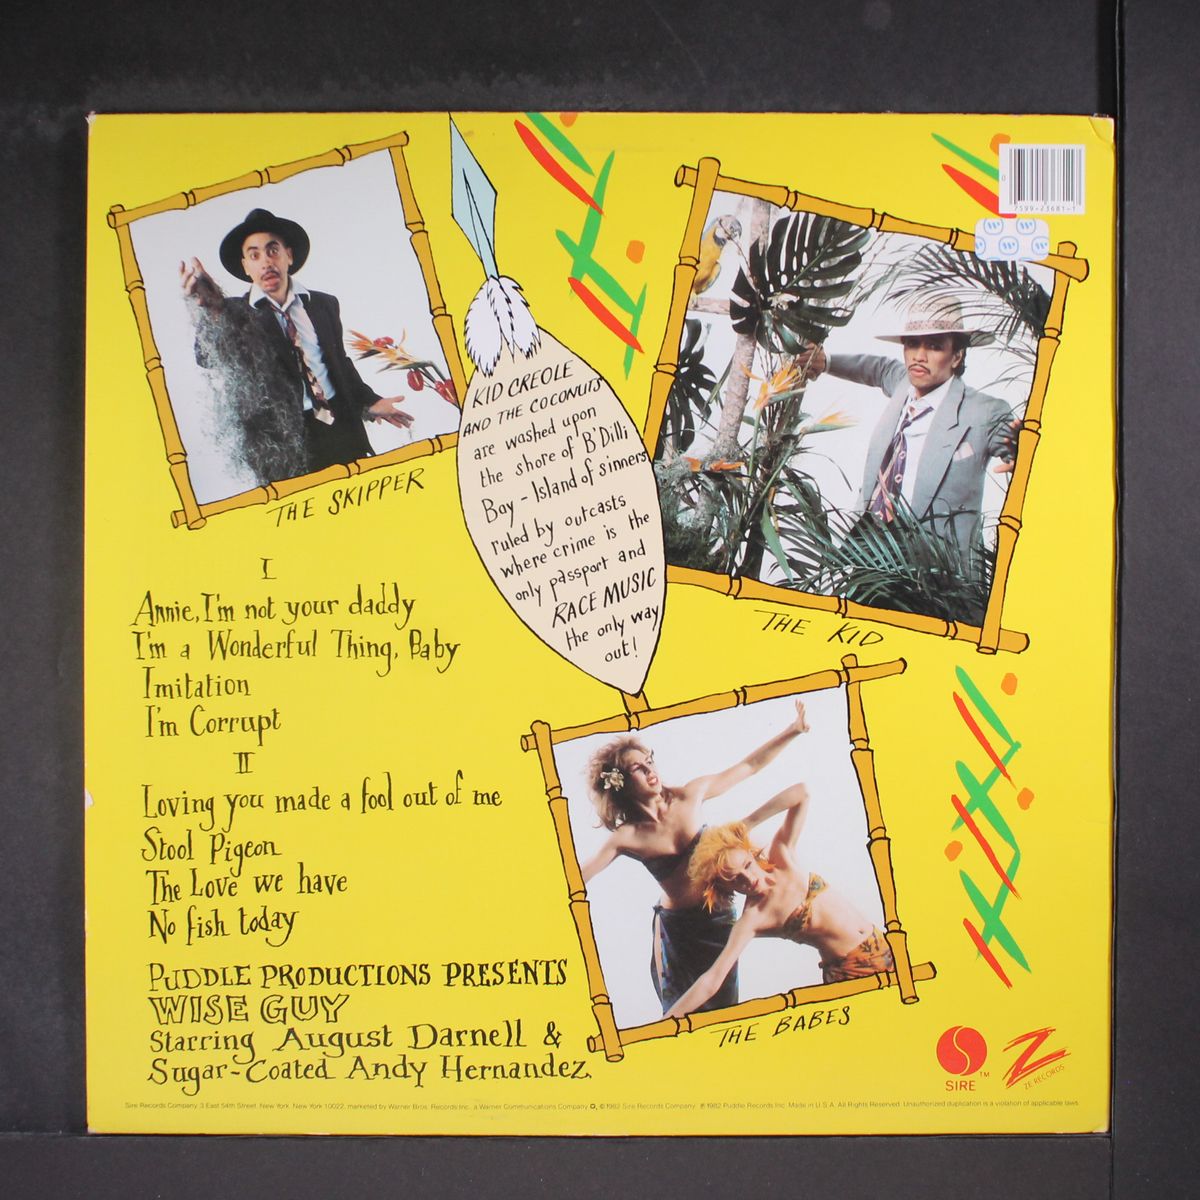 0
7599-23681-1
KID CREOLE
AND THE COCONUTS
are washed upon
the shore of B'Dilli
Bay - Island of sinners
ruled by outcasts
where crime is the
only passport and
RACE MUSIC
the only way
out!
THE SKIPPER
THE KID
I
Annie, I'm not your daddy
I'm a Wonderful Thing, Baby
Imitation
I'm Corrupt
II
Loving you made a fool out of me
Stool Pigeon
The Love we have
No fish today
THE BABES
PUDDLE PRODUCTIONS PRESENTS
WISE GUY
Starring August Darnell &
Sugar-Coated Andy Hernandez.
SIRE TM
ZE RECORDS
Sire Records Company 3 East 54th Street, New York, New York 10022, marketed by Warner Bros. Records Inc., a Warner Communications Company, ©1982 Sire Records Company ℗1982 Puddle Records Inc. Made in U.S.A. All Rights Reserved. Unauthorized duplication is a violation of applicable laws